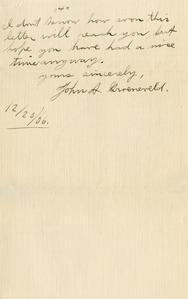 -4-
I don't know how soon this
letter will reach you but
hope you have had a nice
time anyway.
Yours sincerely,
John A. Groeneveld.
12/25/06.